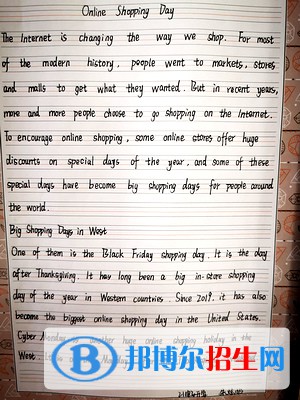 Online Shopping Day
The Internet is changing the way we shop. For most
of the modern history, people went to markets, stores
and malls to get what they wanted. But in recent years,
more and more people choose to go shopping on the Internet.
To encourage online shopping, some online stores offer huge
discounts on special days of the year, and some of these
special days have become big shopping days for people around
the world.
Big Shopping Days in West
One of them is the Black Friday shopping day. It is the day
after Thanksgiving. It has long been a big in-store shopping
day of the year in Western countries. Since 2019, it has also
become the biggest online shopping day in the United States.
Cyber Monday is another huge online shopping holiday in the
West.
邦博尔招生网